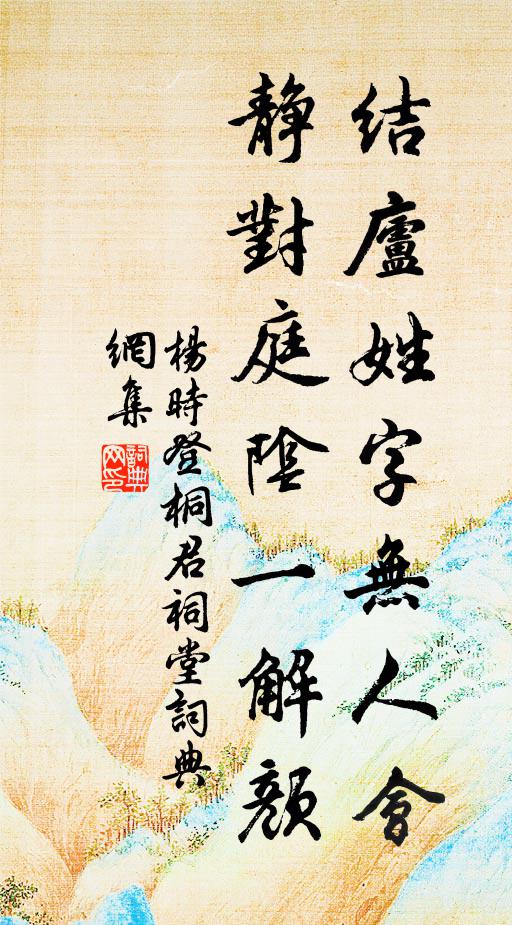 结廬姓字無人會
靜對庭陰一解顏
楊時登桐君祠堂詞典
網集
詞典網印